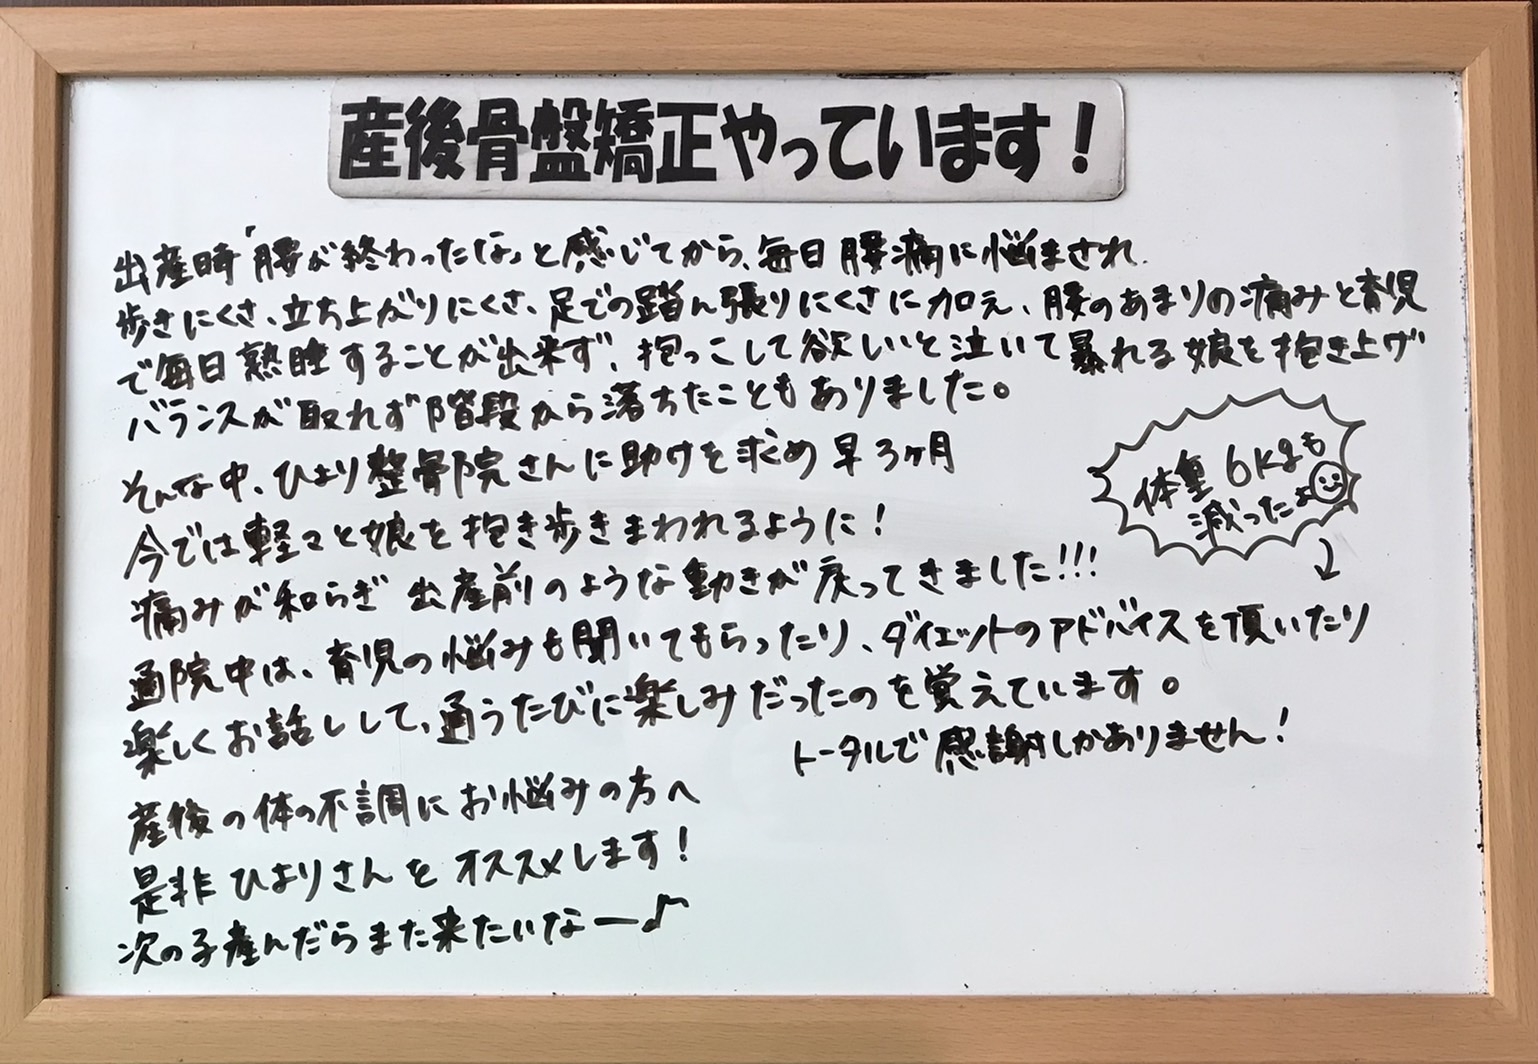 産後骨盤矯正やっています！
出産時「腰が終わったな」と感じてから、毎日腰痛に悩まされ
歩きにくさ、立ち上がりにくさ、足での踏ん張りにくさに加え、腰のあまりの痛みと育児
で毎日熟睡することが出来ず、抱っこして欲しいと泣いて暴れる娘を抱き上げ
バランスが取れず階段から落ちたこともありました。
そんな中、ひより整骨院さんに助けを求め早3ヶ月
今では軽々と娘を抱き歩きまわれるように！
痛みが和らぎ出産前のような動きが戻ってきました!!!
体重6kgも
減ったよ
通院中は、育児の悩みも聞いてもらったり、ダイエットのアドバイスを頂いたり
楽しくお話しして、通うたびに楽しみだったのを覚えています。
トータルで感謝しかありません！
産後の体の不調にお悩みの方へ
是非ひよりさんをオススメします！
次の子産んだらまた来たいなー♪